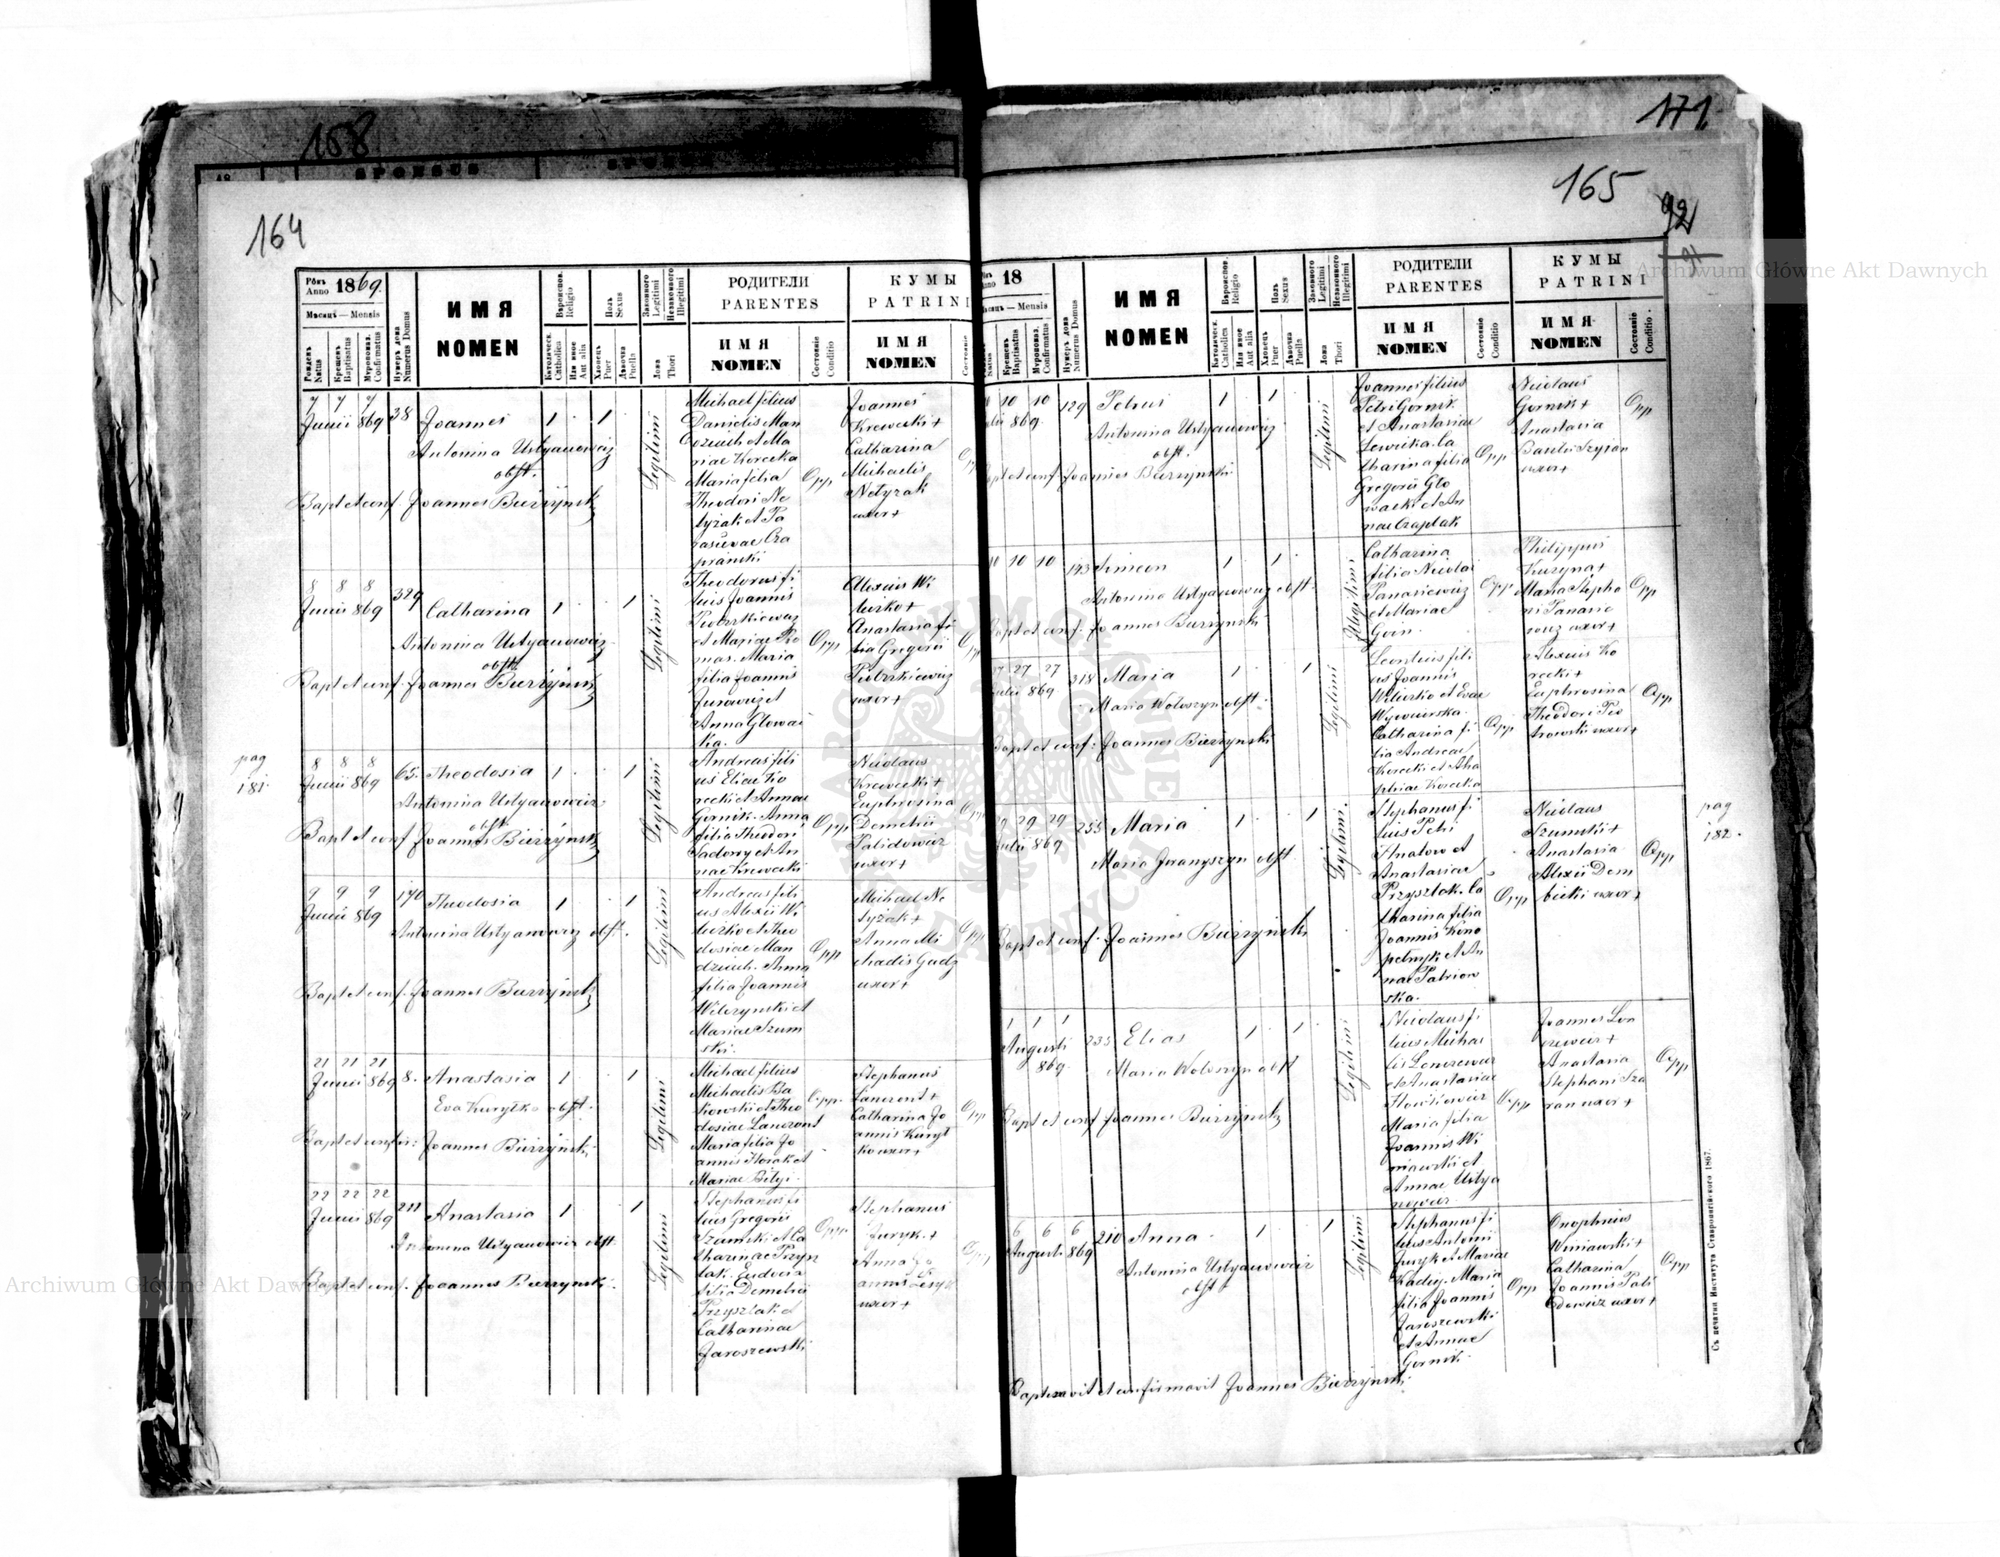 158
171.
164
165
92
Рôкъ Anno 1869.
Мѣсяцъ — Mensis
Рожденъ Natus
Крещенъ Baptisatus
Мѵропомаз. Confirmatus
Нумеръ дома Numerus Domus
ИМЯ
NOMEN
Вѣроиспов. Religio
Католическ. Catholica
Или иное Aut alia
Полъ Sexus
Хлопецъ Puer
Дѣвочка Puella
Законного Legitimi
Незаконного Illegitimi
Ложа Thori
РОДИТЕЛИ
PARENTES
ИМЯ
NOMEN
Состояніе Conditio
КУМЫ
PATRINI
ИМЯ
NOMEN
Состояніе
7 7 7
Junii 869
38
Joannes
1 1
Antonina Ustyanowicz
obst.
Bapt et conf. Joannes Bierzynski
Legitimi
Michael filius
Danielis Man
dziuch et Ma
riae Korecka
Maria filia
Theodori Ne
tyzak et Pa
Opp
Joannes
Krewecki +
Catharina
Michaelis
Netyzak
uxor +
8 8 8
Junii 869
329
Catharina
1 1
Antonina Ustyanowicz
obst.
Bapt et conf. Joannes Bierzynski
Legitimi
Theodorus fi
lius Joannis
Piotrzkiewicz
et Mariae Ro
mas. Maria
filia Joannis
Jurowicz et
Anna Glowac
ka.
Opp
Alexius Wi
liczko +
Anastasia fi
lia Gregorii
Piotrzkiewicz
uxor +
pag
181.
8 8 8
Junii 869
65.
Theodosia
1 1
Antonina Ustyanowicz
obst.
Bapt et conf Joannes Bierzynski
Legitimi
Andreas fili
us Eliae Ko
recki et Annae
Gornik. Anna
filia Theodori
Sadowy et An
nae Krewecki
Opp
Nicolaus
Krewecki +
Euphrosina
Demetrii
Palidowicz
uxor +
9 9 9
Junii 869
170
Theodosia
1 1
Antonina Ustyanowicz obst.
Bapt et conf. Joannes Bierzynski
Legitimi
Andreas fili
us Alexii Wi
liczko et Theo
dosiae Man
dziuch. Anna
filia Joannis
Wilczynski et
Mariae Szum
ski.
Opp
Michael Ne
tyzak +
Anna Mi
chaelis Gudz
uxor +
21 21 21
Junii 869
8.
Anastasia
1 1
Eva Kuryłko obst.
Bapt et confir: Joannes Bierzynski
Legitimi
Michael filius
Michaelis Ba
kowski et Theo
dosiae Lancront
Maria filia Jo
annis Horak et
Mariae Bilyj.
Opp.
Stephanus
Lancront +
Catharina Jo
annis Kuryl
ko uxor +
Opp
22 22 22
Junii 869
211
Anastasia
1 1
Antonina Ustyanowicz obst
Bapt et conf. Joannes Bierzynski
Legitimi
Stephanus fi
lius Gregorii
Szumski et Ca
tharinae Przysz
lak. Eudocia
filia Demetrii
Przyszlak et
Catharinae
Jaroszewski
Opp
Stephanus
Juryk. +
Anna Jo
annis Lesyk
uxor +
Anno 18
Мѣсяцъ — Mensis
Natus
Крещенъ Baptisatus
Мѵропомаз. Confirmatus
Нумеръ дома Numerus Domus
ИМЯ
NOMEN
Вѣроиспов. Religio
Католическ. Catholica
Или иное Aut alia
Полъ Sexus
Хлопецъ Puer
Дѣвочка Puella
Законного Legitimi
Незаконного Illegitimi
Ложа Thori
РОДИТЕЛИ
PARENTES
ИМЯ
NOMEN
Состояніе Conditio
КУМЫ
PATRINI
ИМЯ
NOMEN
Состояніе Conditio
10 10
869
129
Petrus
1 1
Antonina Ustyanowicz
obst.
Bapt et conf Joannes Bierzynski
Legitimi
Joannes filius
Petri Gornik
et Anastasiae
Lewicka. Ca
tharina filia
Gregorii Glo
wacki et An
nae Czaplak
Opp
Nicolaus
Gornik +
Anastasia
Basilii Szyran
uxor +
Opp
10 10
143
Simeon
1 1
Antonina Ustyanowicz obst.
Bapt et conf. Joannes Bierzynski
Illegitimi
Catharina
filia Nicolai
Panasiewicz
et Mariae
Opp
Philippus
Kuzyna +
Maria Stepha
ni Panasie
wicz uxor +
Opp
27 27 27
Julii 869.
318
Maria
1 1
Maria Woloszyn obst.
Bapt et conf: Joannes Bierzynski
Legitimi
Leontius fili
us Joannis
Wiliczko et Evae
Catharina fi
lia Andreae
Korecki et Aha
phiae Korecka
Opp
Alexius Ko
recki +
Euphrosina
Theodori Pio
trowski uxor +
Opp
29 29 29
Julii 869
255
Maria
1 1
Maria Iwanyszyn obst
Bapt et conf. Joannes Bierzynski
Legitimi.
Stephanus fi
lius Petri
Hnatow et
Anastasiae
Przyszlak. Ca
tharina filia
Joannis Kono
pelnyk et An
nae Patriow
ska.
Opp
Nicolaus
Szumski +
Anastasia
Alexii Dem
bicki uxor +
Opp
pag
182.
1 1 1
Augusti
869.
235
Elias
1 1
Maria Woloszyn obst
Bapt et conf Joannes Bierzynski
Legitimi
Nicolaus fi
lius Michae
lis Lonczewicz
et Anastasiae
Maria filia
Joannis Wi
niawski et
Annae Ustya
nowicz.
Opp
Joannes Lon
czewicz +
Anastasia
Stephani Sza
ran uxor +
Opp
6 6 6
Augusti 869
210
Anna
1 1
Antonina Ustyanowicz
obst
Legitimi
Stephanus fi
lius Antonii
Juryk et Mariae
Kadij. Maria
filia Joannis
Jaroszewski
et Annae
Gornik.
Opp
Onophrius
Winiawski +
Catharina
Joannis Pali
dowicz uxor +
Opp
Baptisavit et confirmavit Joannes Bierzynski.
Съ печатни Института Ставропигійского 1867.
Archiwum Główne Akt Dawnych
Archiwum Główne Akt Dawnych
ARCHIWUM GŁÓWNE AKT DAWNYCH